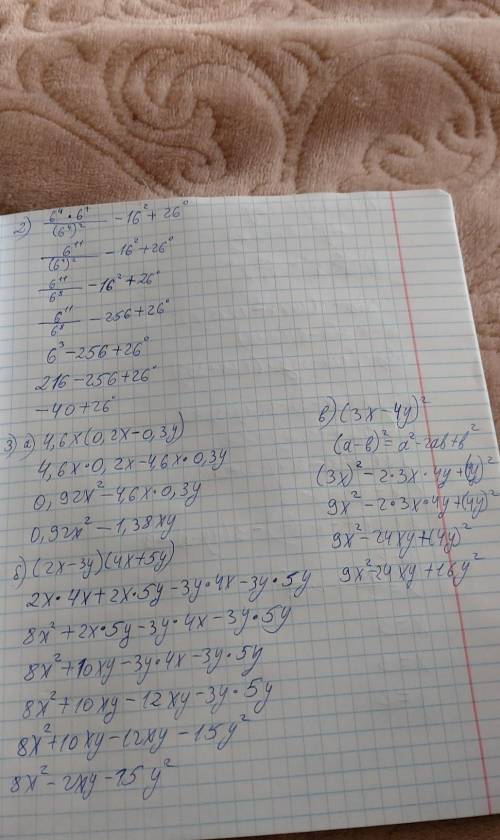 2) 6⁴ • 6⁷ / (6⁴)² - 16² + 26⁰
6¹¹ / (6⁴)² - 16² + 26⁰
6¹¹ / 6⁸ - 16² + 26⁰
6¹¹ / 6⁸ - 256 + 26⁰
6³ - 256 + 26⁰
216 - 256 + 26⁰
-40 + 26⁰
3) а) 4,6x(0,2x - 0,3y)
4,6x • 0,2x - 4,6x • 0,3y
0,92x² - 4,6x • 0,3y
0,92x² - 1,38xy
б) (2x - 3y)(4x + 5y)
2x • 4x + 2x • 5y - 3y • 4x - 3y • 5y
8x² + 2x • 5y - 3y • 4x - 3y • 5y
8x² + 10xy - 3y • 4x - 3y • 5y
8x² + 10xy - 12xy - 3y • 5y
8x² + 10xy - 12xy - 15y²
8x² - 2xy - 15y²
в) (3x - 4y)²
(a - b)² = a² - 2ab + b²
(3x)² - 2 • 3x • 4y + (4y)²
9x² - 2 • 3x • 4y + (4y)²
9x² - 24xy + (4y)²
9x² - 24xy + 16y²